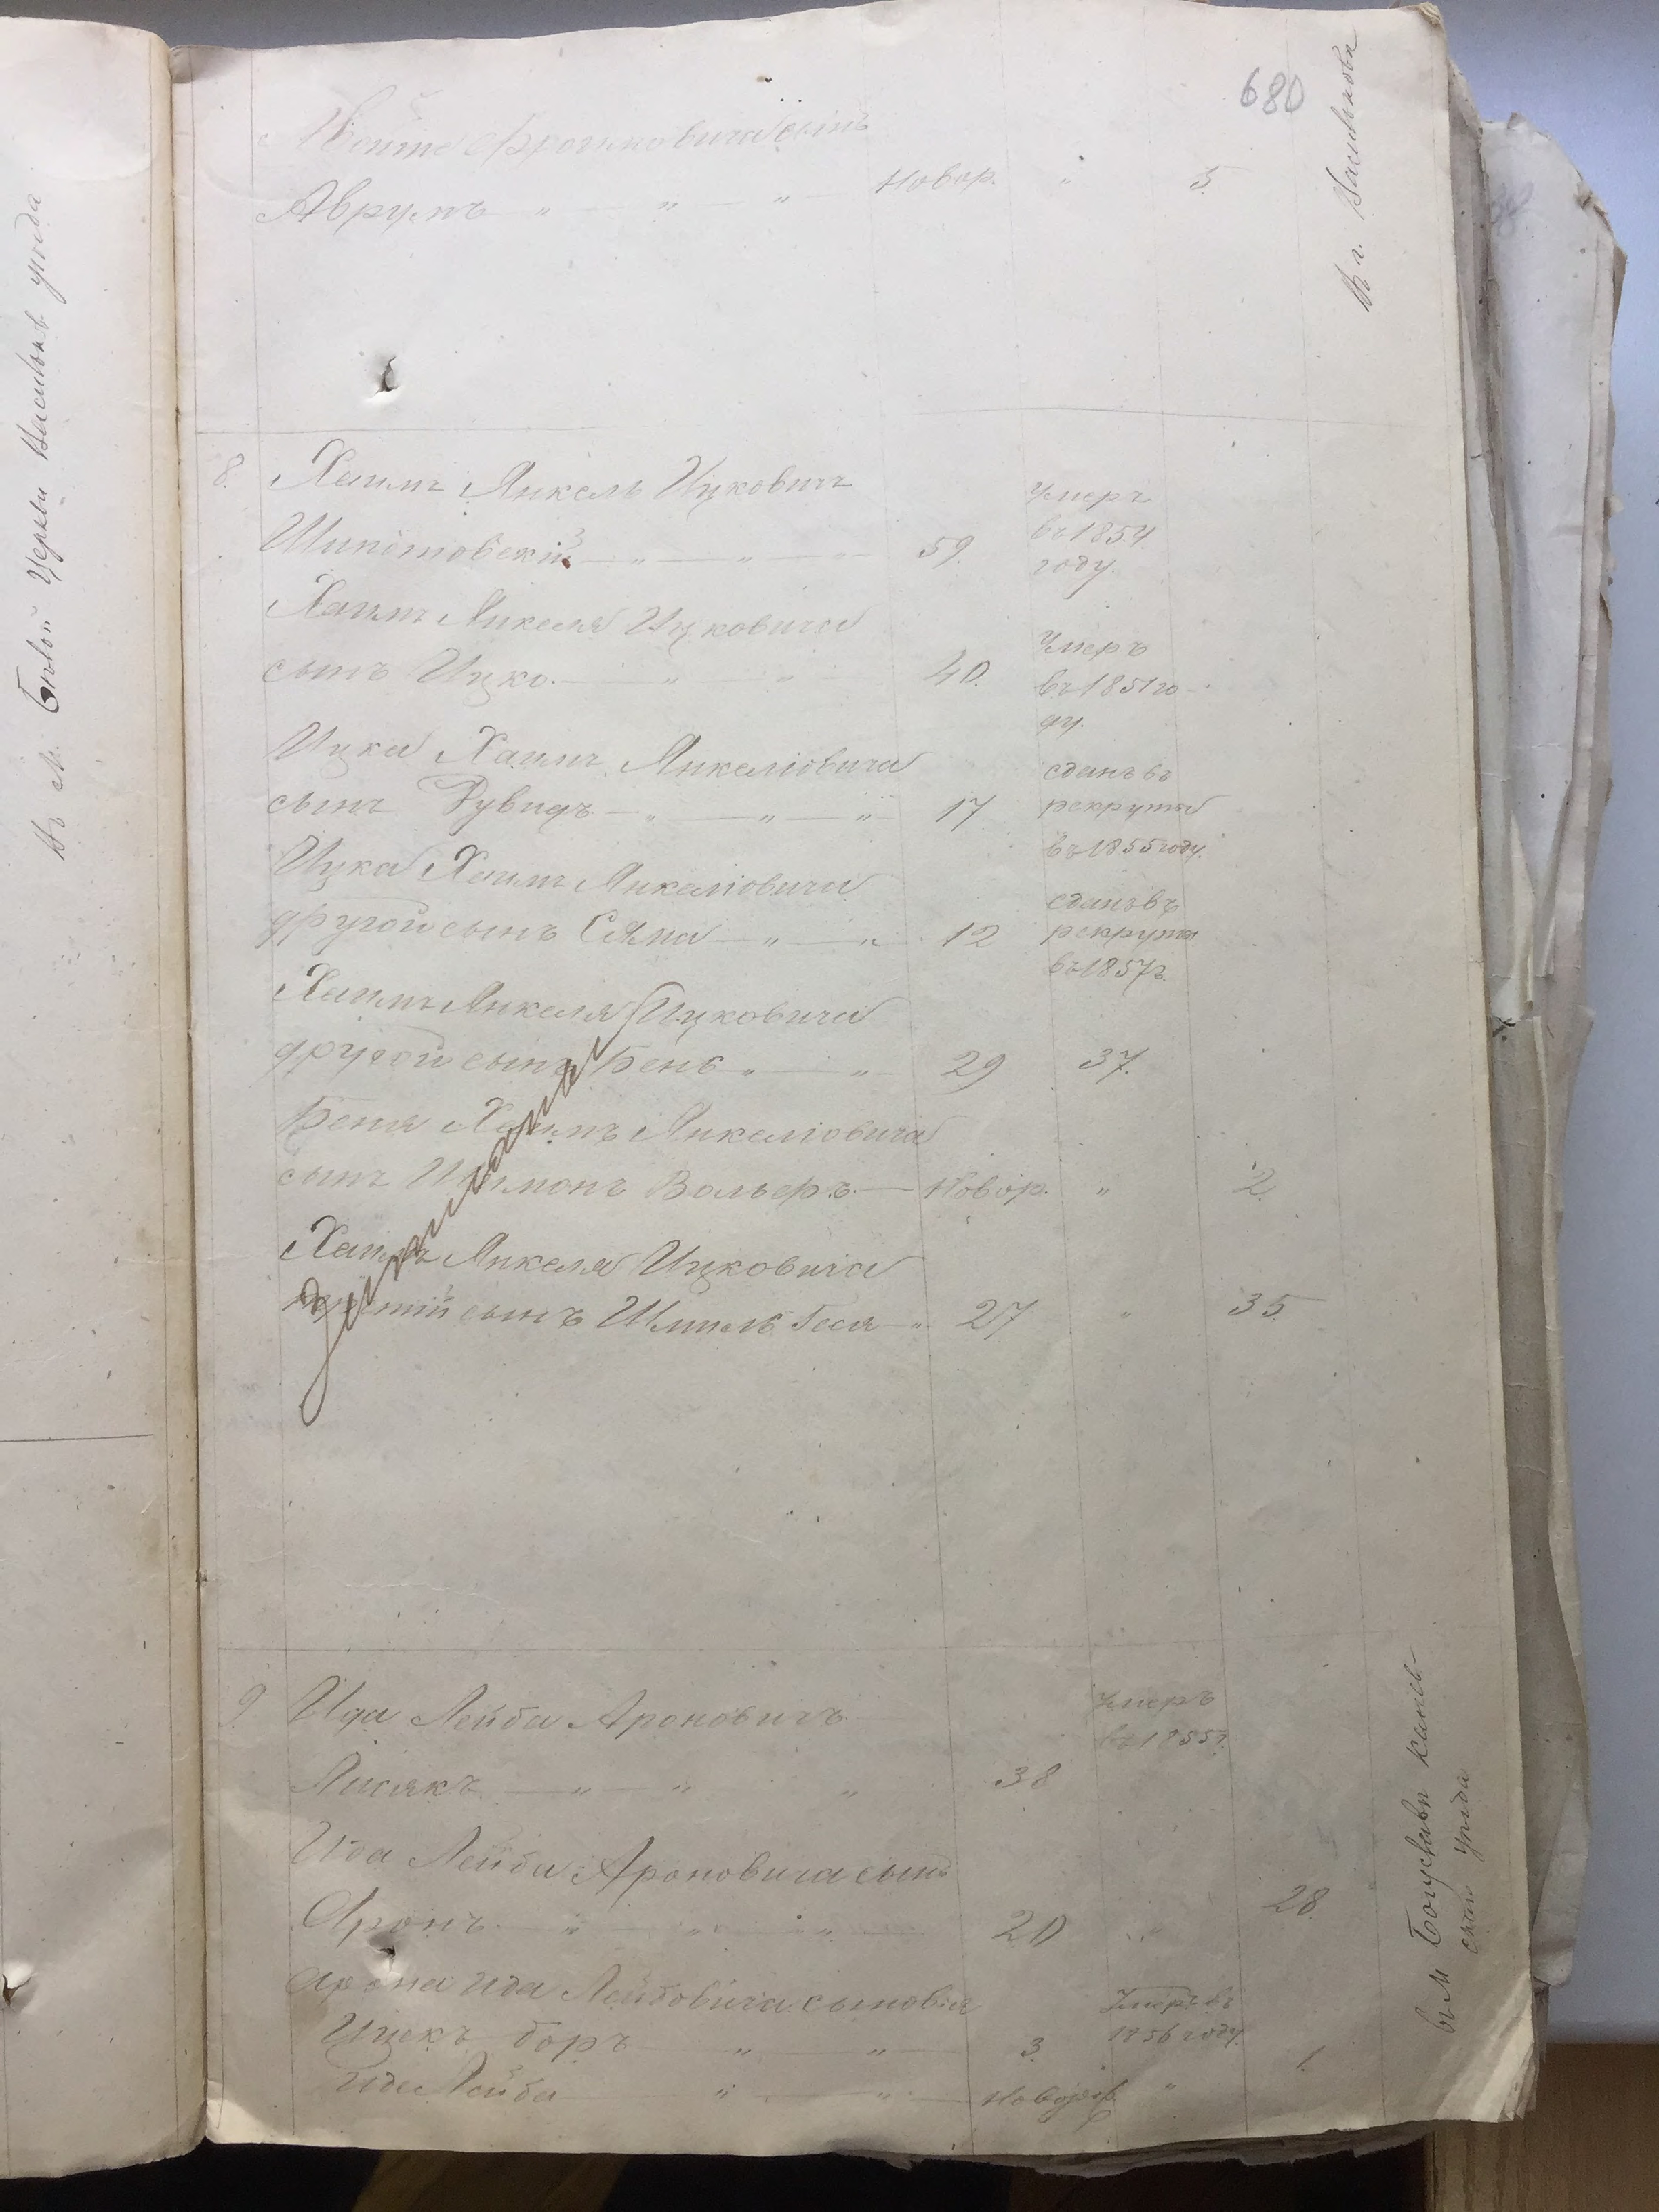 въ м. Бѣлой Церкви Васильк. уѣзда
680
Фроимовича сынъ
Аврумъ — " — " — " — Новор. " 5.
въ г. Васильковѣ
8. Хаимъ Янкель Ицковичъ
Умеръ
въ 1854
году.
Шипотовскій — " — " — " 59.
Хаимъ Янкеля Ицковича
сынъ Ицко. — " — " — 40.
Умеръ
въ 1851 го
ду.
Ицка Хаимъ Янкеліовича
сынъ Дувидъ — " — " — " 17
сданъ въ
рекруты
въ 1855 году.
Ицка Хаимъ Янкеліовича
другой сынъ Сяма — " — " 12
сданъ въ
рекруты
въ 1857 г.
Хаимъ Янкеля Ицковича
другой сынъ Беня " — " — 29 37.
Беня Хаимъ Янкеліовича
сынъ Шимонъ Вольеръ — Новор. " 2.
Хаимъ Янкеля Ицковича
третій сынъ — " 27 " 35.
9. Ида Лейба Ароновичъ
Умеръ
въ 1855 г.
Лисякъ — " — " " 38
Ида Лейба Ароновича сынъ
Аронъ — " — " — " 20 " 28.
Арона Ида Лейбовича сыновья
Ицекъ боръ " — " — 3.
Умеръ въ
1856 году.
Ида Лейба " — " — Новор. " 1.
въ М Богуславѣ Канев-
скаго уѣзда